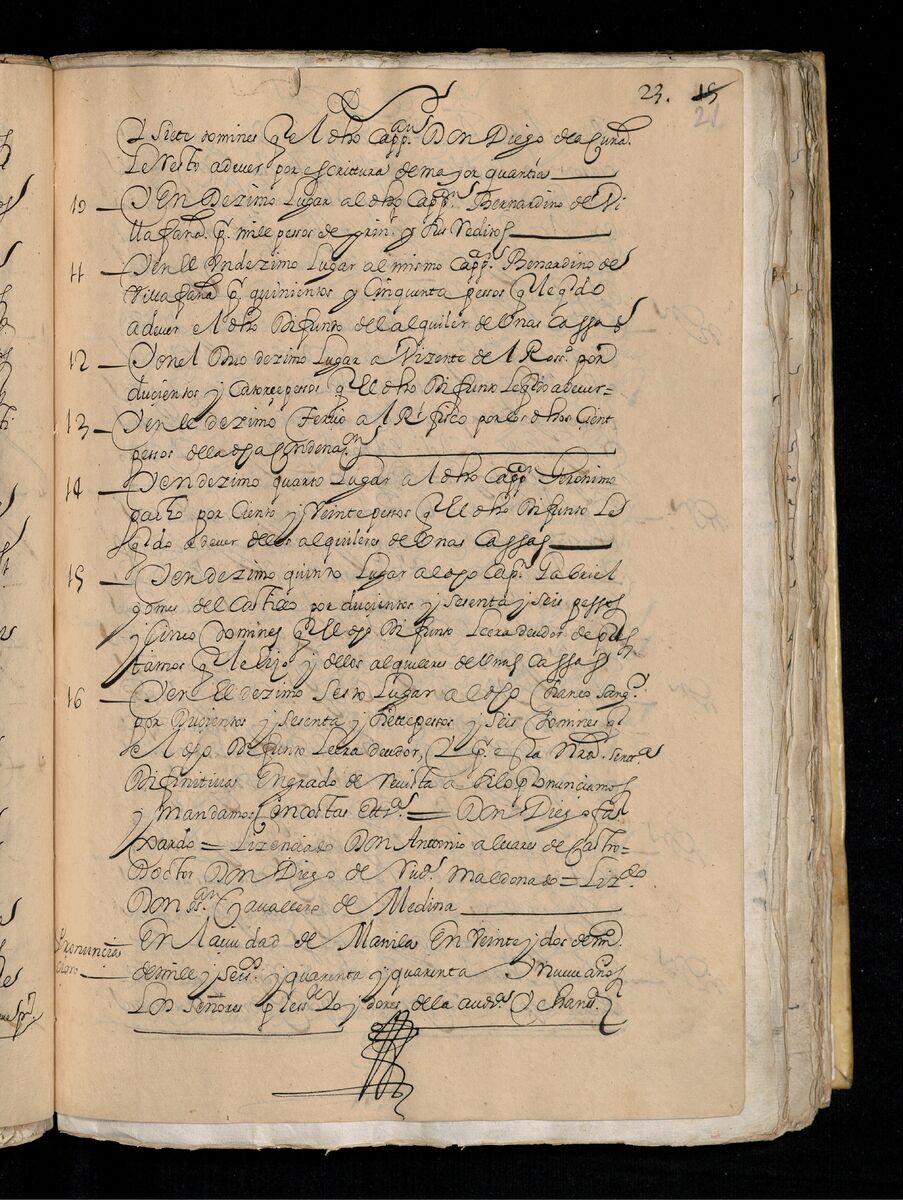 23. 15
21
Y Siete tomines q̃ el dho Capp.an Don Diego de la Cuna.
le Resto a dever por escrittura de mayor quantia
10 Y En Dezimo Lugar al dho Capp.n Bernardino de Vi
llafana. p.r mill pessos de prin.l y sus Reditos
11 Y en el Undezimo Lugar al mismo Capp.n Benardino de
Villafaña p.r quinientos y Cinquenta pessos q̃ le q̃do
a dever el dho Difunto del alquiler de Unas Cassas
12 Y en el Duo dezimo Lugar a Vizente del Ross.o por
ducientos y Catorce pessos q̃ el dho Difunto le q̃do a dever=
13 Y en el dezimo Tercio al R.l fisco por los dhos Cient
pessos de la dha Condenaz.on
14 Y en dezimo quarto Lugar al dho Capp.n Geronimo
pacho por Ciento y Veinte pessos q̃ el dho Difunto Le
q̃do a dever de los alquileres de Unas Cassas
15 Y en dezimo quinto Lugar al dho Cap.n Gabriel
gomes del Castillo por ducientos y sesenta y seis pessos
y Cinco tomines q̃ el dho Difunto le era deudor de pres
tamos q̃ le hizo y de los alquileres de Unas Cassas
16 Y en el dezimo Sesto Lugar al dho Franco Sang.
por Ducientos y sesenta y siete pessos y seis tomines q̃
el dho Difunto le era deudor, Y p.r esta Nra. senten.a
Difinitiva En grado de Revista assi lo pronunciamos
y mandamos sin costas Ett.a = Don Diego fax
ardo = Lizenciado Don Antonio albares de Castro=
Doctor Don Diego de Maldonado = Liz.do
Don Cavallero de Medina
Pronuncia En la ciudad de Manila En Veinte y dos de
de mill y seis.s y quarenta y quarenta Y nueve años
Los señores pressid.te y oydores de la aud.a Y chans.a